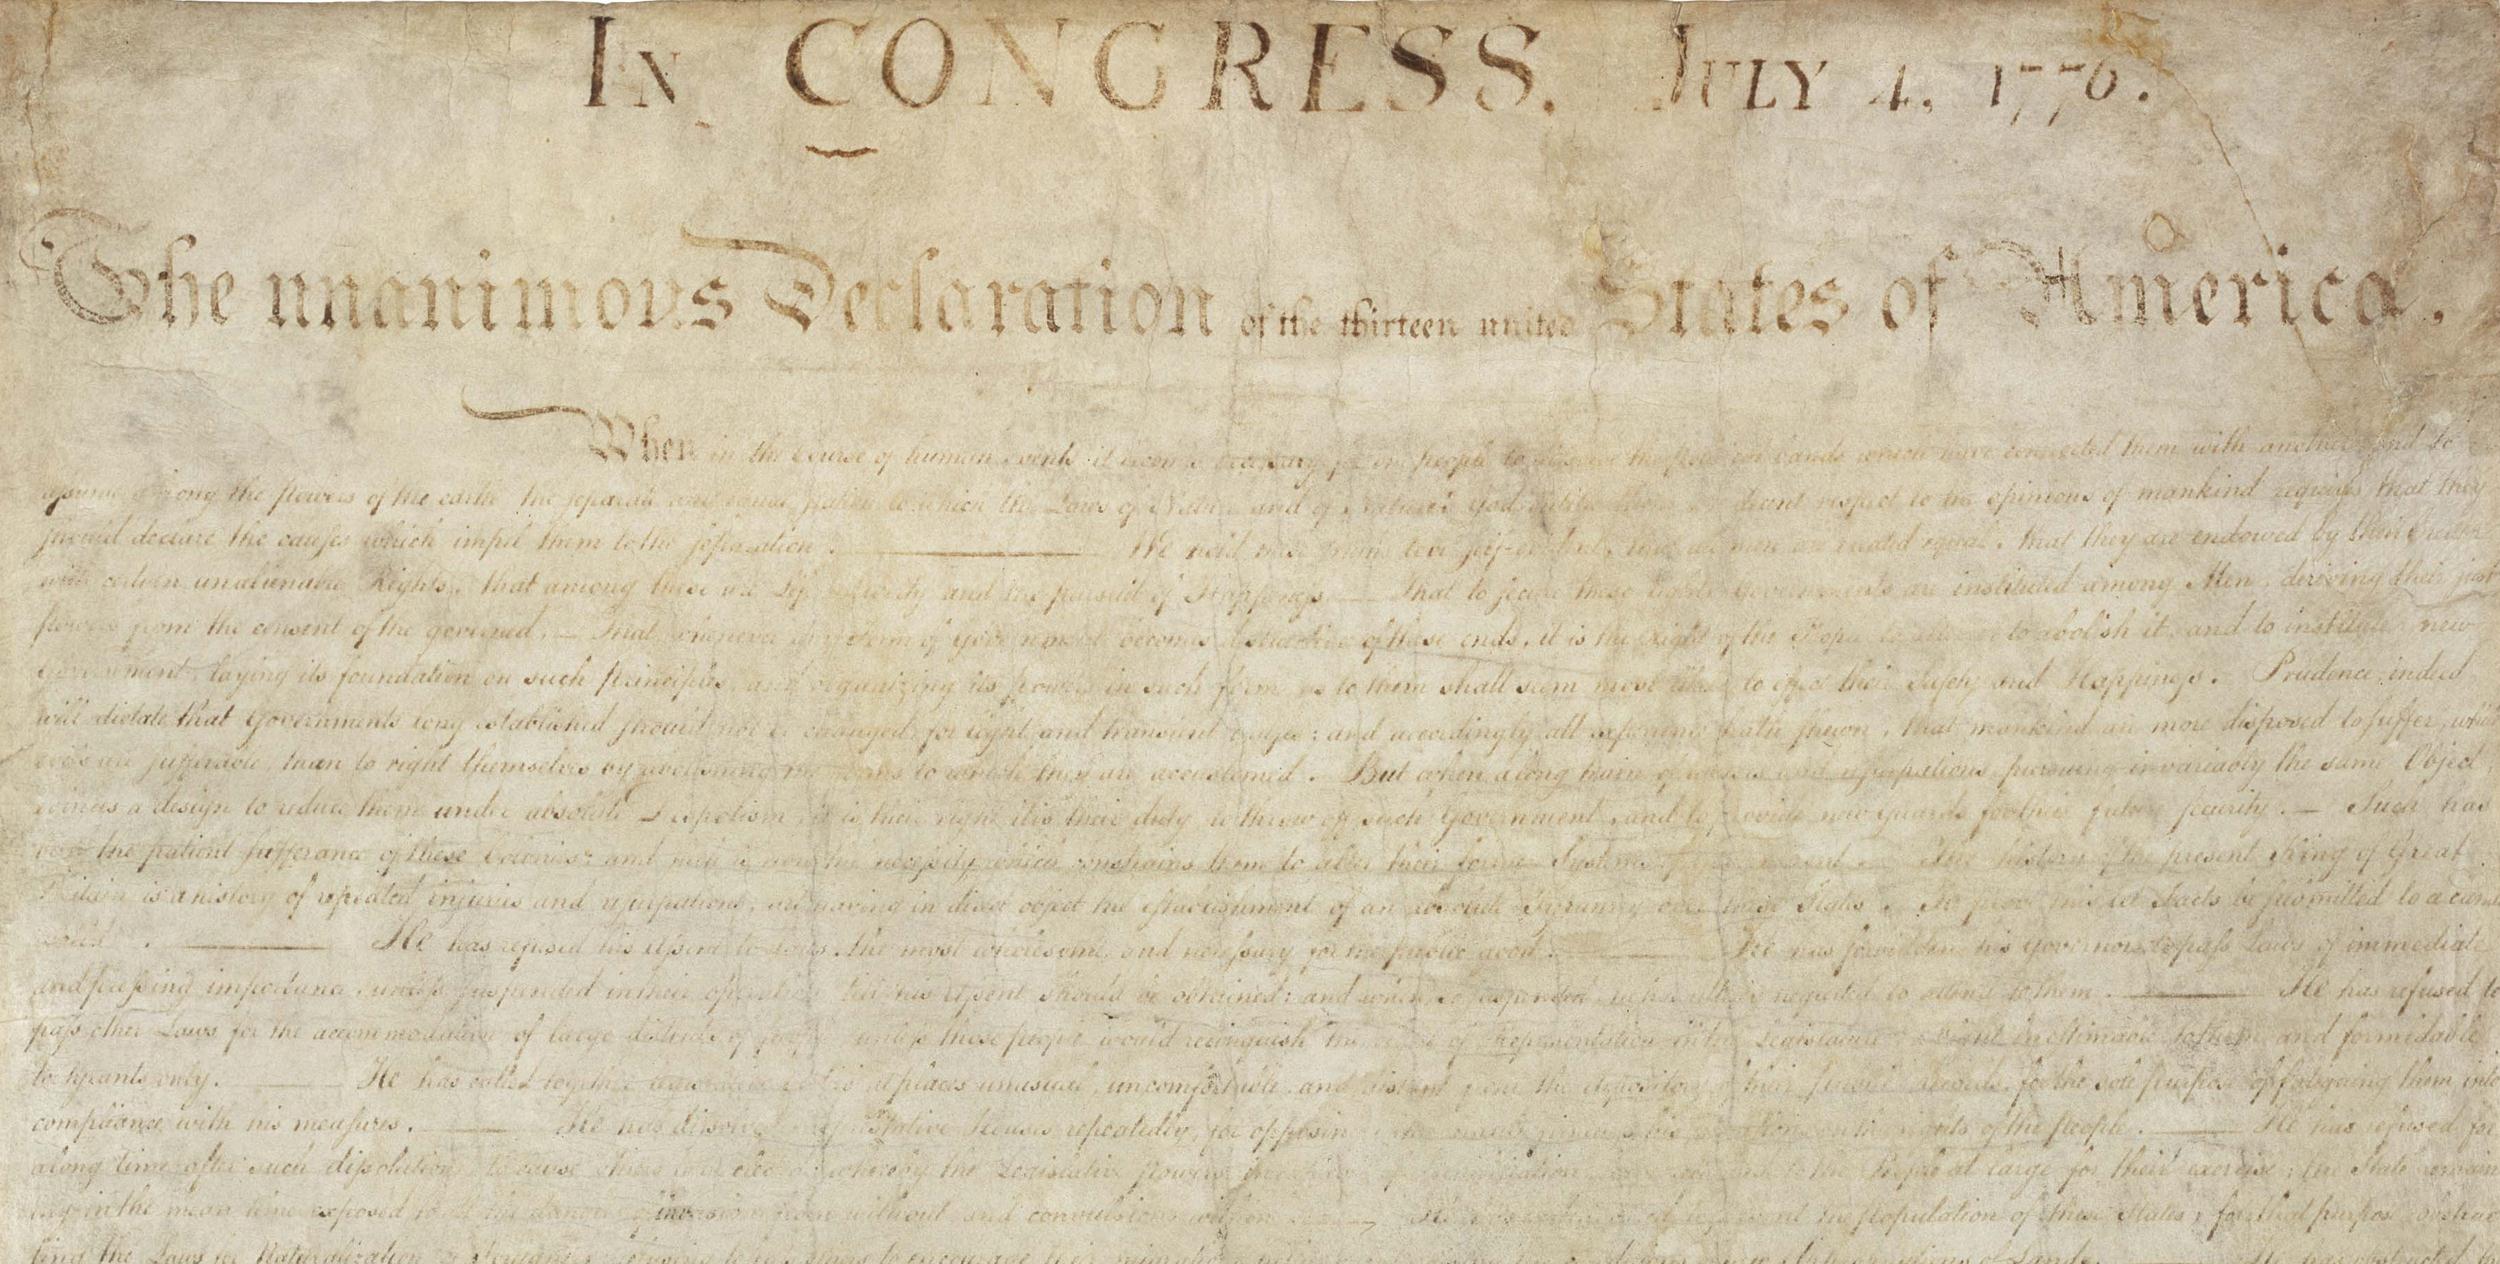 In CONGRESS. July 4, 1776.
The unanimous Declaration of the thirteen united States of America.
When in the Course of human events it becomes necessary for one people to dissolve the political bands which have connected them with another and to
assume among the powers of the earth, the separate and equal station to which the Laws of Nature and of Nature's God entitle them, a decent respect to the opinions of mankind requires that they
should declare the causes which impel them to the separation. We hold these truths to be self-evident, that all men are created equal, that they are endowed by their Creator
with certain unalienable Rights, that among these are Life, Liberty and the pursuit of Happiness. — That to secure these rights, Governments are instituted among Men, deriving their just
powers from the consent of the governed, — That whenever any Form of Government becomes destructive of these ends, it is the Right of the People to alter or to abolish it, and to institute new
Government, laying its foundation on such principles, and organizing its powers in such form, as to them shall seem most likely to effect their Safety and Happiness. Prudence, indeed,
will dictate that Governments long established should not be changed for light and transient causes; and accordingly all experience hath shewn, that mankind are more disposed to suffer, while
evils are sufferable, than to right themselves by abolishing the forms to which they are accustomed. But when a long train of abuses and usurpations, pursuing invariably the same Object
evinces a design to reduce them under absolute Despotism, it is their right, it is their duty, to throw off such Government, and to provide new Guards for their future security. — Such has
been the patient sufferance of these Colonies; and such is now the necessity which constrains them to alter their former Systems of Government. The history of the present King of Great
Britain is a history of repeated injuries and usurpations, all having in direct object the establishment of an absolute Tyranny over these States. To prove this, let Facts be submitted to a candid
world. He has refused his Assent to Laws, the most wholesome and necessary for the public good. He has forbidden his Governors to pass Laws of immediate
and pressing importance, unless suspended in their operation till his Assent should be obtained; and when so suspended, he has utterly neglected to attend to them. He has refused to
pass other Laws for the accommodation of large districts of people, unless those people would relinquish the right of Representation in the Legislature, a right inestimable to them and formidable
to tyrants only. He has called together legislative bodies at places unusual, uncomfortable, and distant from the depository of their public Records, for the sole purpose of fatiguing them into
compliance with his measures. He has dissolved Representative Houses repeatedly, for opposing with manly firmness his invasions on the rights of the people. He has refused for
a long time, after such dissolutions, to cause others to be elected; whereby the Legislative powers, incapable of Annihilation, have returned to the People at large for their exercise; the State remain
ing in the mean time exposed to all the dangers of invasion from without, and convulsions within. He has endeavoured to prevent the population of these States; for that purpose obstruc
ting the Laws for Naturalization of Foreigners; refusing to pass others to encourage their migrations hither, and raising the conditions of new Appropriations of Lands. He has obstructed